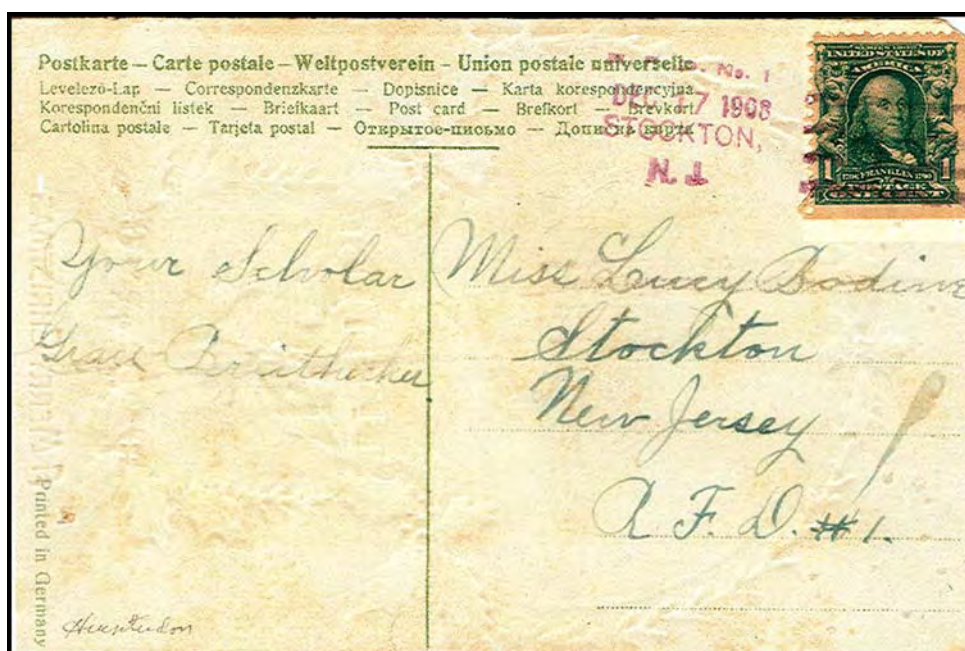 Postkarte — Carte postale — Weltpostverein - Union postale universelle
Levelező-Lap — Correspondenzkarte — Dopisnice — Karta korespondencyjna
Korespondenční lístek — Briefkaart — Post card — Brefkort — Brevkort
Cartolina postale — Tarjeta postal — Открытое-письмо — Дописна карта
No. 1
DEC 17 1908
STOCKTON,
N. J.
UNITED STATES OF
AMERICA
1 FRANKLIN 1
POSTAGE
Your Scholar
Grace
Miss Lucy Bodine
Stockton
New Jersey
R. F. D. #1.
Printed in Germany
Hunterdon